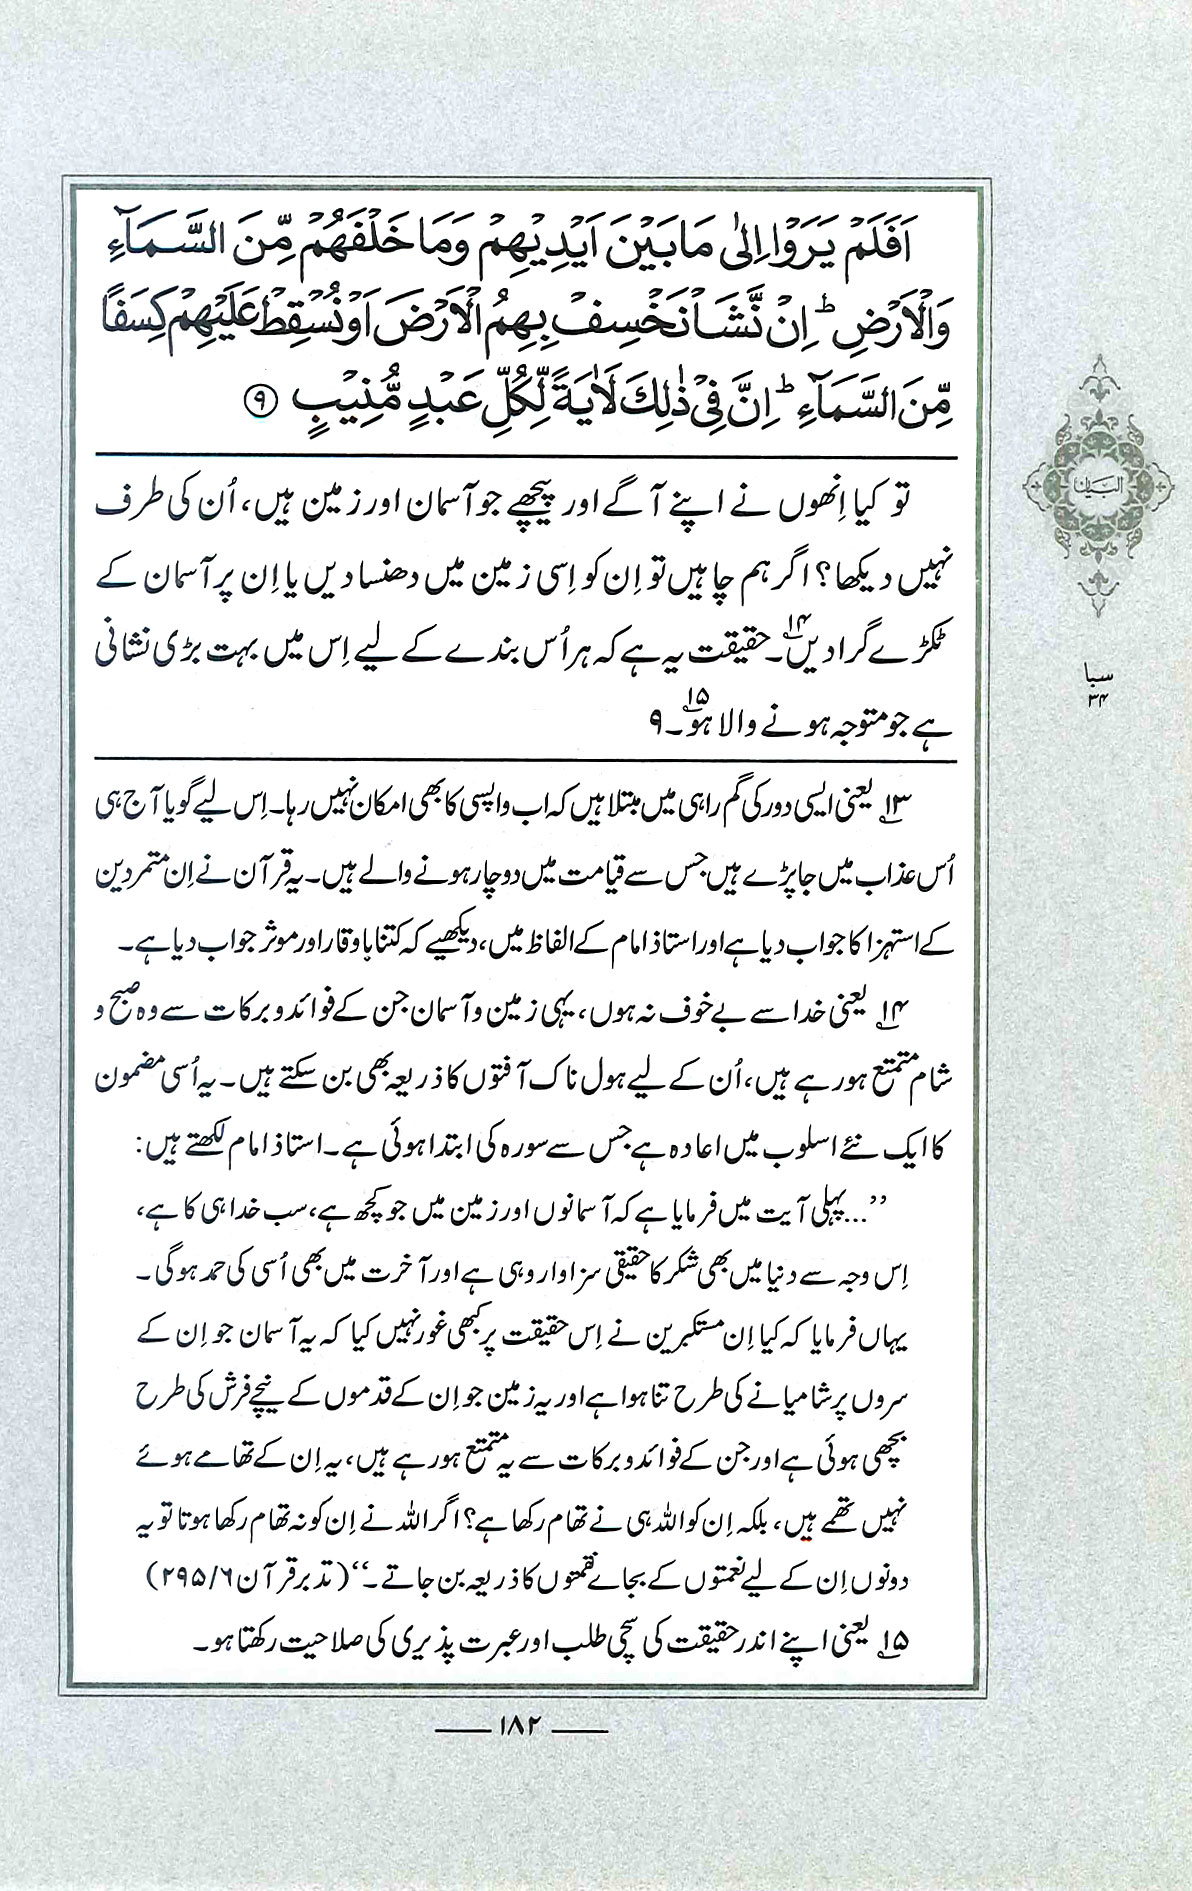 اَفَلَمْ يَرَوْا اِلٰى مَا بَيْنَ اَيْدِيْهِمْ وَمَا خَلْفَهُمْ مِّنَ السَّمَآءِ
وَالْاَرْضِ ؕ اِنْ نَّشَاْ نَخْسِفْ بِهِمُ الْاَرْضَ اَوْ نُسْقِطْ عَلَيْهِمْ كِسَفًا
مِّنَ السَّمَآءِ ؕ اِنَّ فِيْ ذٰلِكَ لَاٰيَةً لِّكُلِّ عَبْدٍ مُّنِيْبٍ ۹
تو کیا اِنھوں نے اپنے آگے اور پیچھے جو آسمان اور زمین ہیں، اُن کی طرف
نہیں دیکھا؟ اگر ہم چاہیں تو اِن کو اِسی زمین میں دھنسا دیں یا اِن پر آسمان کے
ٹکڑے گرا دیں۱۴۔ حقیقت یہ ہے کہ ہر اُس بندے کے لیے اِس میں بہت بڑی نشانی
ہے جو متوجہ ہونے والا ہو۱۵۔ ۹
۱۳ یعنی ایسی دور کی گم راہی میں مبتلا ہیں کہ اب واپسی کا بھی امکان نہیں رہا۔ اِس لیے گویا آج ہی
اُس عذاب میں جا پڑے ہیں جس سے قیامت میں دوچار ہونے والے ہیں۔ یہ قرآن نے اِن متمردین
کے استہزا کا جواب دیا ہے اور استاذ امام کے الفاظ میں، دیکھیے کہ کتنا باوقار اور موثر جواب دیا ہے۔
۱۴ یعنی خدا سے بے خوف نہ ہوں، یہی زمین و آسمان جن کے فوائد و برکات سے وہ صبح و
شام متمتع ہو رہے ہیں، اُن کے لیے ہول ناک آفتوں کا ذریعہ بھی بن سکتے ہیں۔ یہ اُسی مضمون
کا ایک نئے اسلوب میں اعادہ ہے جس سے سورہ کی ابتدا ہوئی ہے۔ استاذ امام لکھتے ہیں:
”...پہلی آیت میں فرمایا ہے کہ آسمانوں اور زمین میں جو کچھ ہے، سب خدا ہی کا ہے،
اِس وجہ سے دنیا میں بھی شکر کا حقیقی سزاوار وہی ہے اور آخرت میں بھی اُسی کی حمد ہوگی۔
یہاں فرمایا کہ کیا اِن مستکبرین نے اِس حقیقت پر کبھی غور نہیں کیا کہ یہ آسمان جو اِن کے
سروں پر شامیانے کی طرح تنا ہوا ہے اور یہ زمین جو اِن کے قدموں کے نیچے فرش کی طرح
بچھی ہوئی ہے اور جن کے فوائد و برکات سے یہ متمتع ہو رہے ہیں، یہ اِن کے تھامے ہوئے
نہیں تھمے ہیں، بلکہ اِن کو اللہ ہی نے تھام رکھا ہے؟ اگر اللہ نے اِن کو نہ تھام رکھا ہوتا تو یہ
دونوں اِن کے لیے نعمتوں کے بجاے نقمتوں کا ذریعہ بن جاتے۔“ (تدبر قرآن ۶/ ۲۹۵)
۱۵ یعنی اپنے اندر حقیقت کی سچی طلب اور عبرت پذیری کی صلاحیت رکھتا ہو۔
البیان
سبا
۳۴
۱۸۲